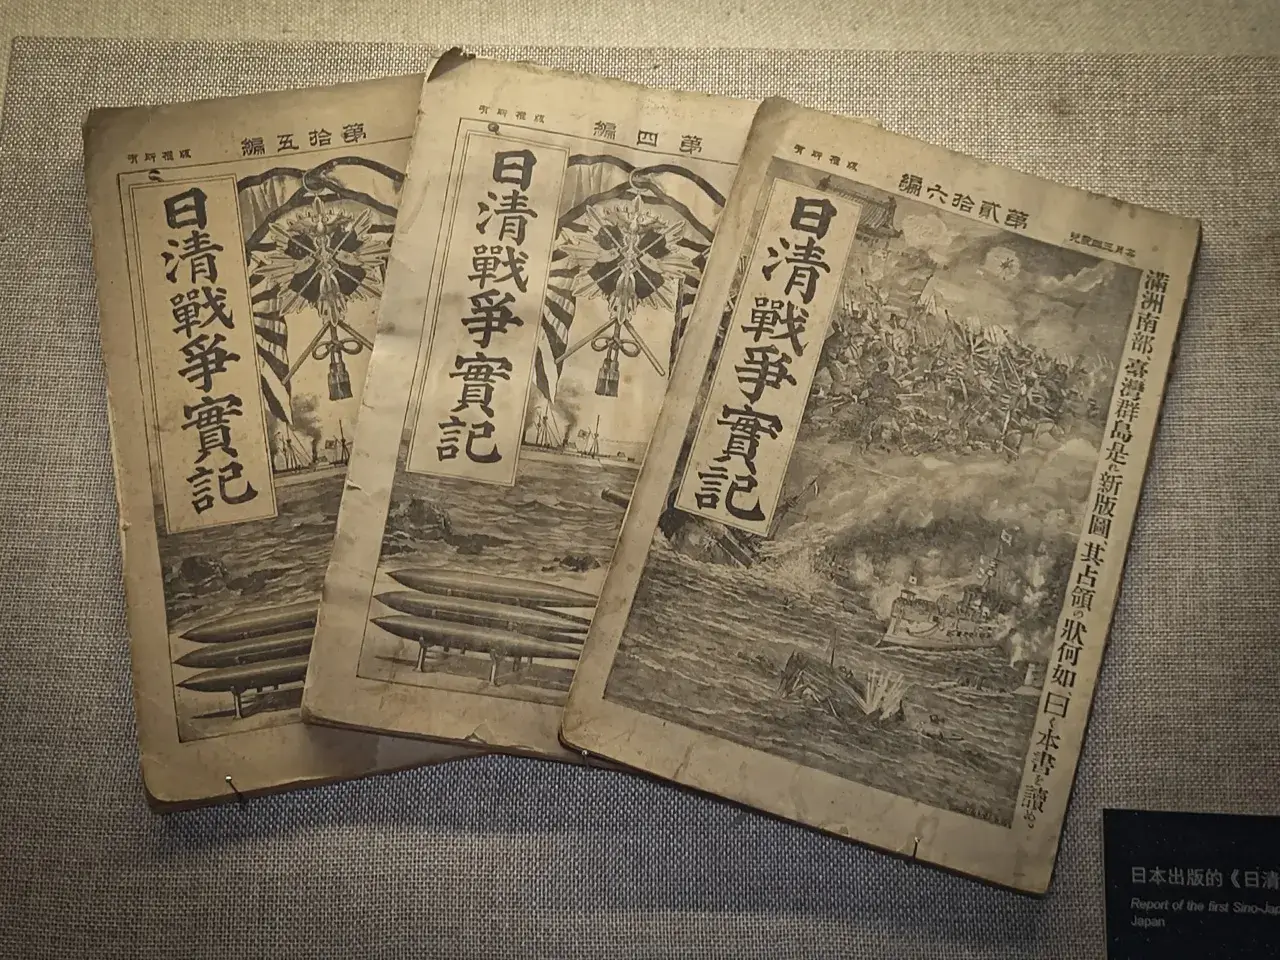 編五拾第
有所權版
日清戰爭實記
編四第
有所權版
日清戰爭實記
編六拾貳第
有所權版
日清戰爭實記
滿洲南部、臺灣群島是れ新版圖、其占領の狀何如、曰く本書を讀め。
日本出版的《日清
Report of the first Sino-Jap
Japan